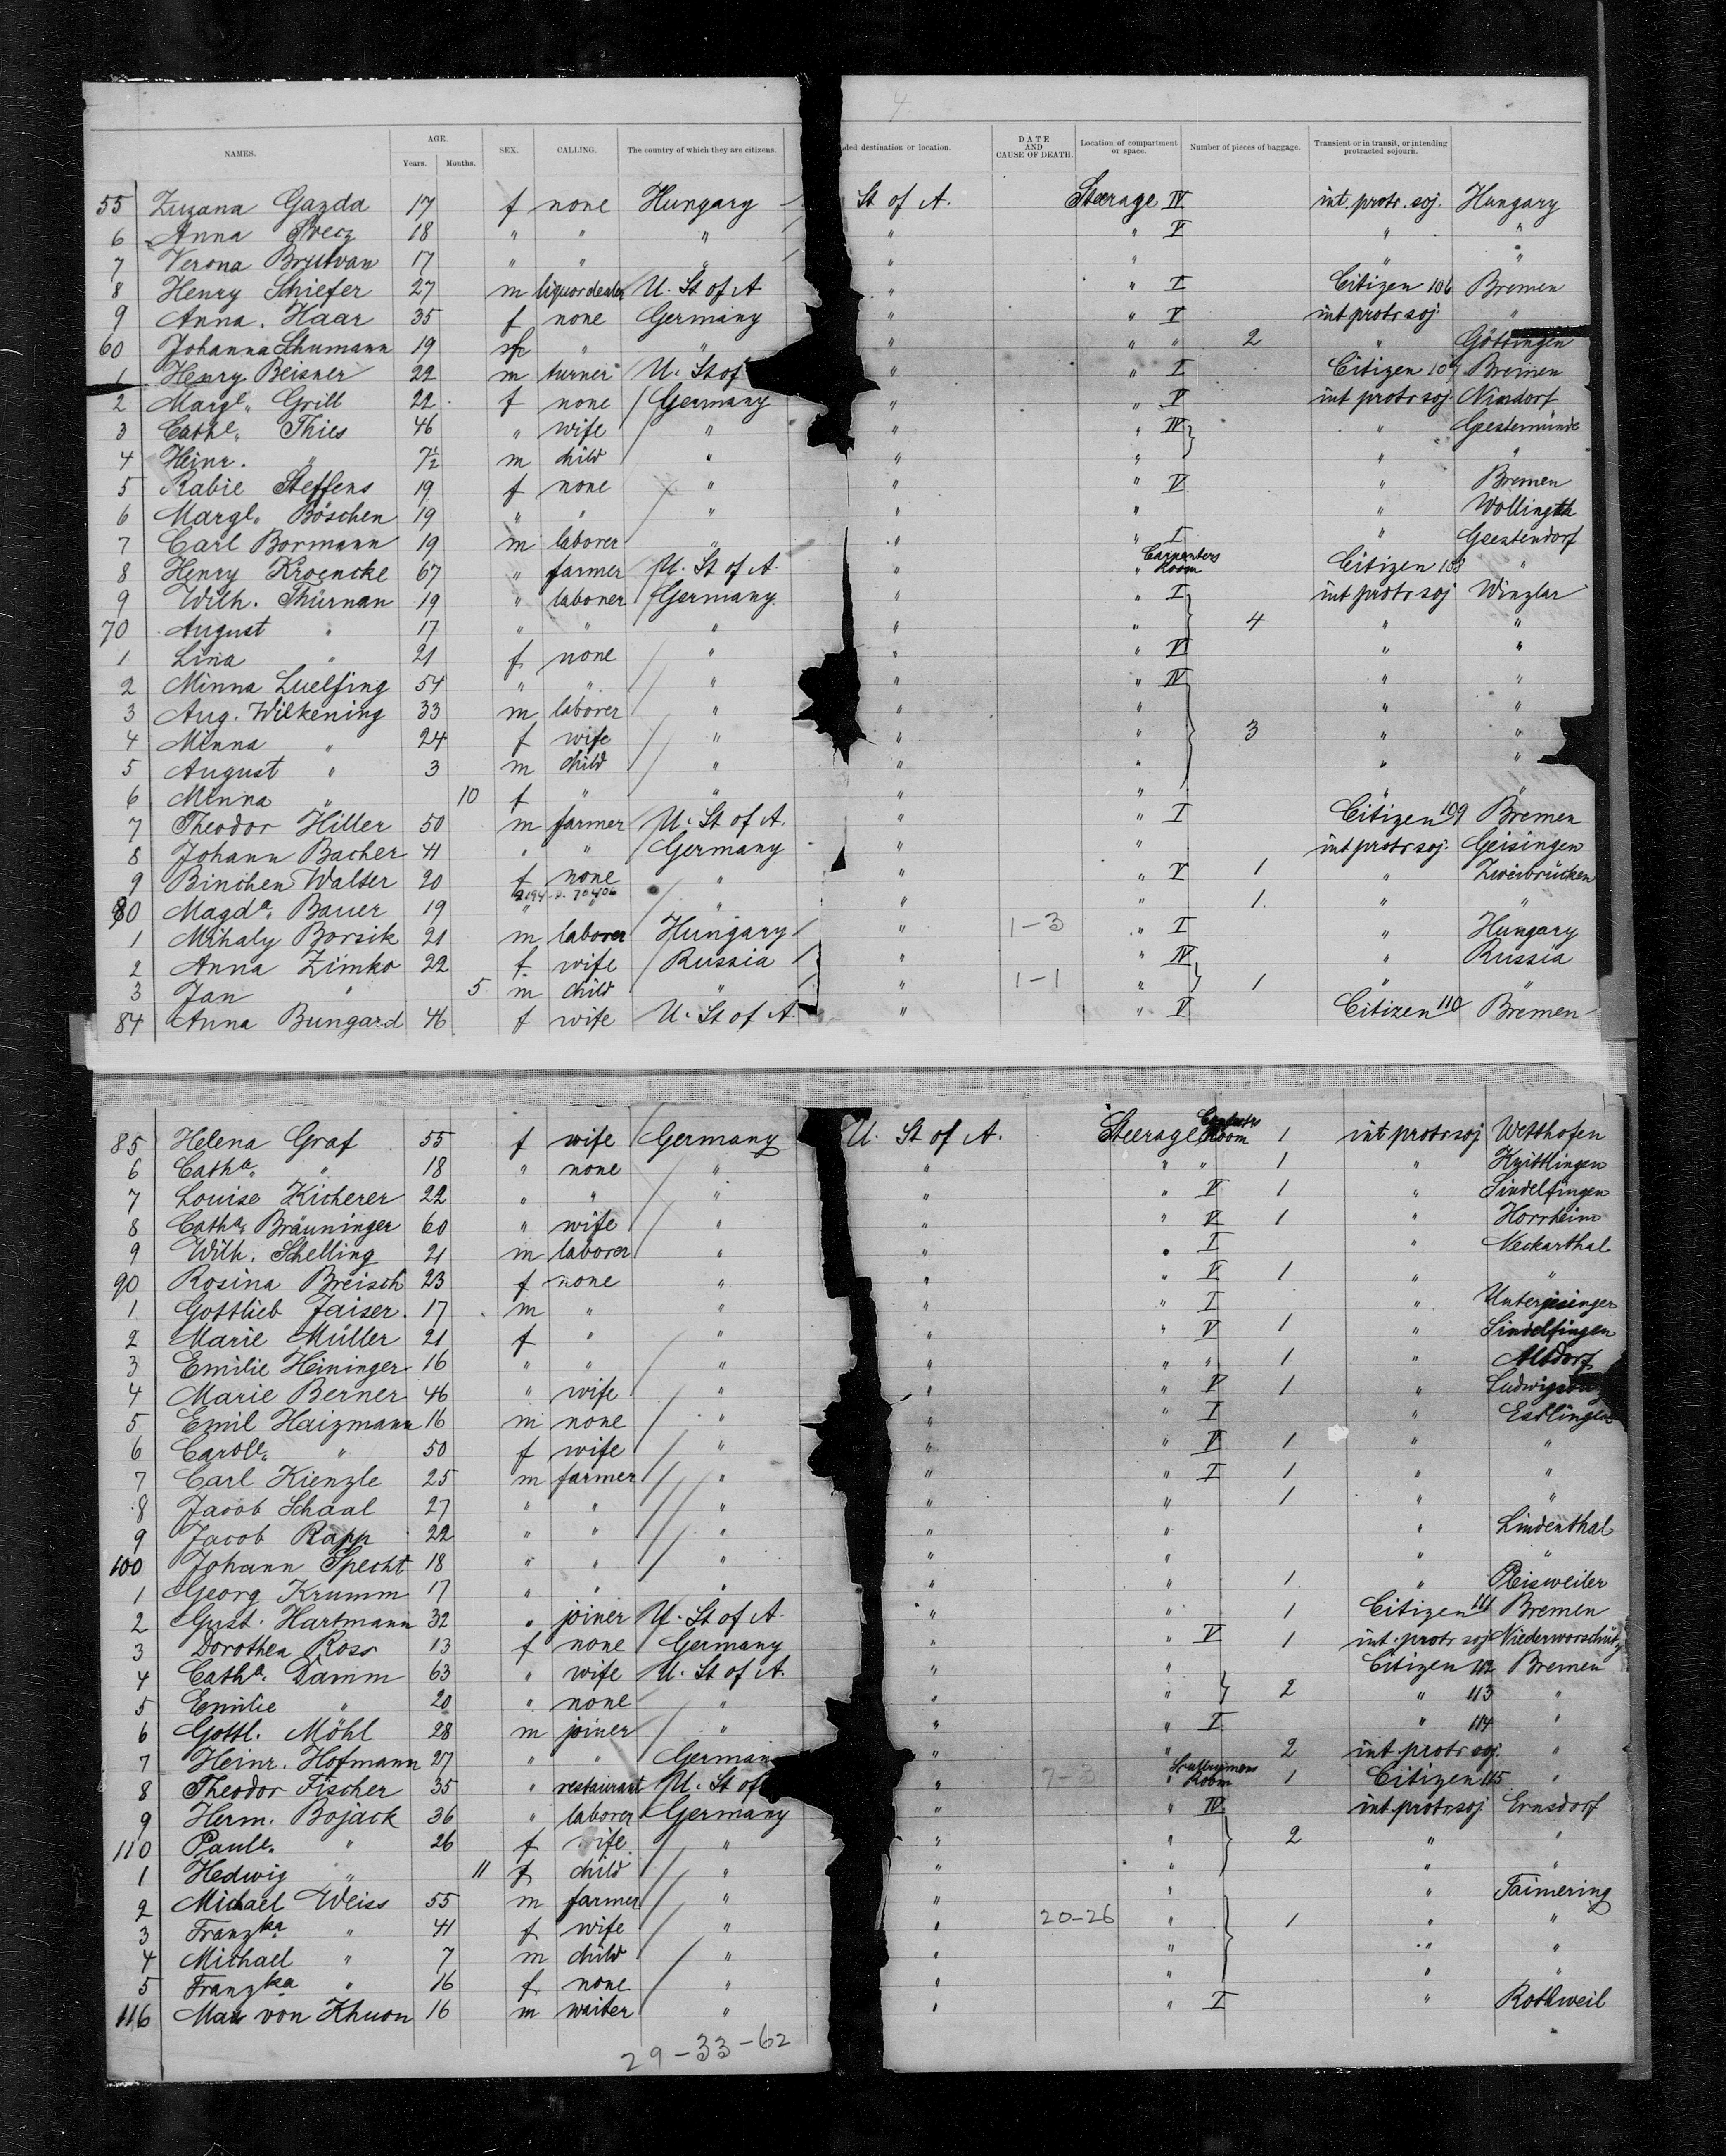 4
NAMES. AGE. Years. Months. SEX. CALLING. The country of which they are citizens. ded destination or location. DATE AND CAUSE OF DEATH. Location of compartment or space. Number of pieces of baggage. Transient or in transit, or intending protracted sojourn.
55 Zuzana Gazda 17 f none Hungary St of A. Steerage IV int. protr. soj. Hungary
6 Anna 18 " " " " " V " "
7 Verona Brutvan 17 " " " " " " "
8 Henry Schiefer 27 m liquordealer U. St of A " " I Citizen 106 Bremen
9 Anna. Haar 35 f none Germany " " V int protr soj. "
60 Johanna Schumann 19 " " " " " 2 " Göttingen
1 Henry Beisner 22 m turner U. St of " " I Citizen 107 Bremen
2 Margte. Grill 22 f none Germany " " V int protr soj. Nindorf
3 Cathe. Thies 46 " wife " " " IV " Geestemünde
4 Heinr. " 7½ m child " " " " "
5 Rabie Steffens 19 f none " " " V " Bremen
6 Margte. Böschen 19 " " " " " " Wollingth
7 Carl Bormann 19 m laborer " " " I " Geestendorf
8 Henry Kroencke 67 " farmer U. St of A. " " Carpenters Room Citizen 108 "
9 Wilh. Thürnan 19 " laborer Germany " " I int protr soj Winzlar
70 August " 17 " " " " " 4 " "
1 Lina " 21 f none " " " V " "
2 Minna Luelfing 54 " " " " " IV " "
3 Aug. Wilkening 33 m laborer " " " " "
4 Minna " 24 f wife " " " 3 " "
5 August " 3 m child " " " " "
6 Minna " 10 f " " " " " "
7 Theodor Hiller 50 m farmer U. St of A. " " I Citizen 109 Bremen
8 Johann Bacher 41 " " Germany " " int protr soj. Geisingen
9 Binchen Walter 20 f none " " " V 1 " Zweibrücken
80 Magda. Bauer 19 " " " " 1. " "
1 Mihaly Borsik 21 m laborer Hungary " 1-3 " I " Hungary
2 Anna Zimko 22 f wife Russia " " IV " Russia
3 Jan " 5 m child " " 1-1 " 1 " "
84 Anna Bungard 46 f wife U. St of A. " " V Citizen 110 Bremen
85 Helena Graf 55 f wife Germany U. St of A. Steerage Room 1 int protr soj Wetthofen
6 Catha. " 18 " none " " " " 1 " Knittlingen
7 Louise Kicherer 22 " " " " " V 1 " Sindelfingen
8 Catha. Bräuninger 60 " wife " " " V 1 " Horrheim
9 Wilh. Schelling 21 m laborer " " " I " Neckarthal
90 Rosina Breisch 23 f none " " " V 1 " "
1 Gottlieb Jaiser 17 m " " " " I " Unterjesinger
2 Marie Müller 21 f " " " " V 1 " Sindelfingen
3 Emilie Heininger 16 " " " " " " 1 " Alsdorf
4 Marie Berner 46 " wife " " " V 1 "
5 Emil Haizmann 16 m none " " " I " Esslingen
6 Carole. " 50 f wife " " " V 1 " "
7 Carl Kienzle 25 m farmer " " " I 1 " "
8 Jacob Schaal 27 " " " " " 1 " "
9 Jacob Rapp 22 " " " " " " Lindenthal
100 Johann Specht 18 " " " " " " "
1 Georg Krumm 17 " " " " " 1 " Pleisweiler
2 Gust. Hartmann 32 " joiner U. St of A. " " 1 Citizen 111 Bremen
3 Dorothea Ross 13 f none Germany " " V 1 int. protr soj
4 Catha. Damm 63 " wife U. St of A. " " Citizen 112 Bremen
5 Emilie " 20 " none " " " 2 " 113 "
6 Gottl. Möhl 28 m joiner " " " I " 114 "
7 Heinr. Hofmann 27 " " German " " 2 int protr soj. "
8 Theodor Fischer 35 " restaurant U. St of " 7-3 " Room 1 Citizen 115 "
9 Herm. Bojack 36 " laborer Germany " " IV int protr soj Ernsdorf
110 Paule. " 26 f wife " " " 2 " "
1 Hedwig " 11 f child " " " " "
2 Michael Weiss 55 m farmer " " " " Taimering
3 Franzka " 41 f wife " " 20-26 " 1 " "
4 Michael " 7 m child " " " " "
5 Franzka " 16 f none " " " " "
116 Max von Khuon 16 m waiter " " " I " Rothweil
29-33-62